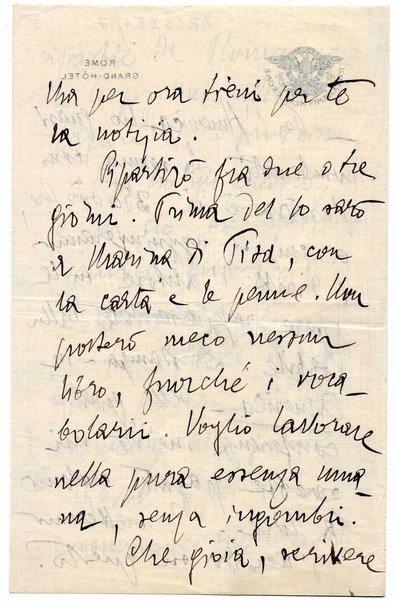 ROME
GRAND-HÔTEL
Ma per ora tieni per te
la notizia.
Ripartirò fra due o tre
giorni. Prima del 10 sarò
a Marina di Pisa, con
la carta e le penne. Non
porterò meco nessun
libro, fuorché i voca-
bolarii. Voglio lavorare
nella pura essenza uma-
na, senza ingombri.
Che gioia, scrivere